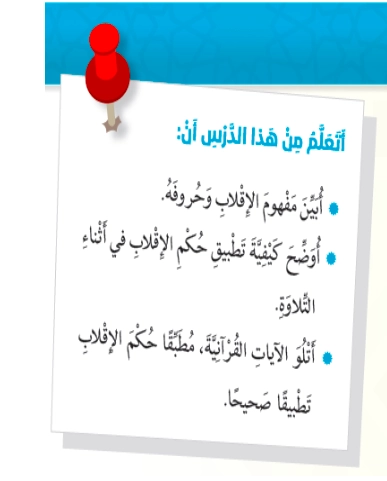 أَتَعَلَّمُ مِنْ هَذا الدَّرْسِ أَنْ:
أُبَيِّنَ مَفْهومَ الإِقْلابِ وَحُروفَهُ.
أُوَضِّحَ كَيْفِيَّةَ تَطْبيقِ حُكْمِ الإِقْلابِ في أَثْناءِ
التِّلاوَةِ.
أَتْلُوَ الآياتِ القُرْآنِيَّةَ، مُطَبِّقًا حُكْمَ الإِقْلابِ
تَطْبيقًا صَحيحًا.